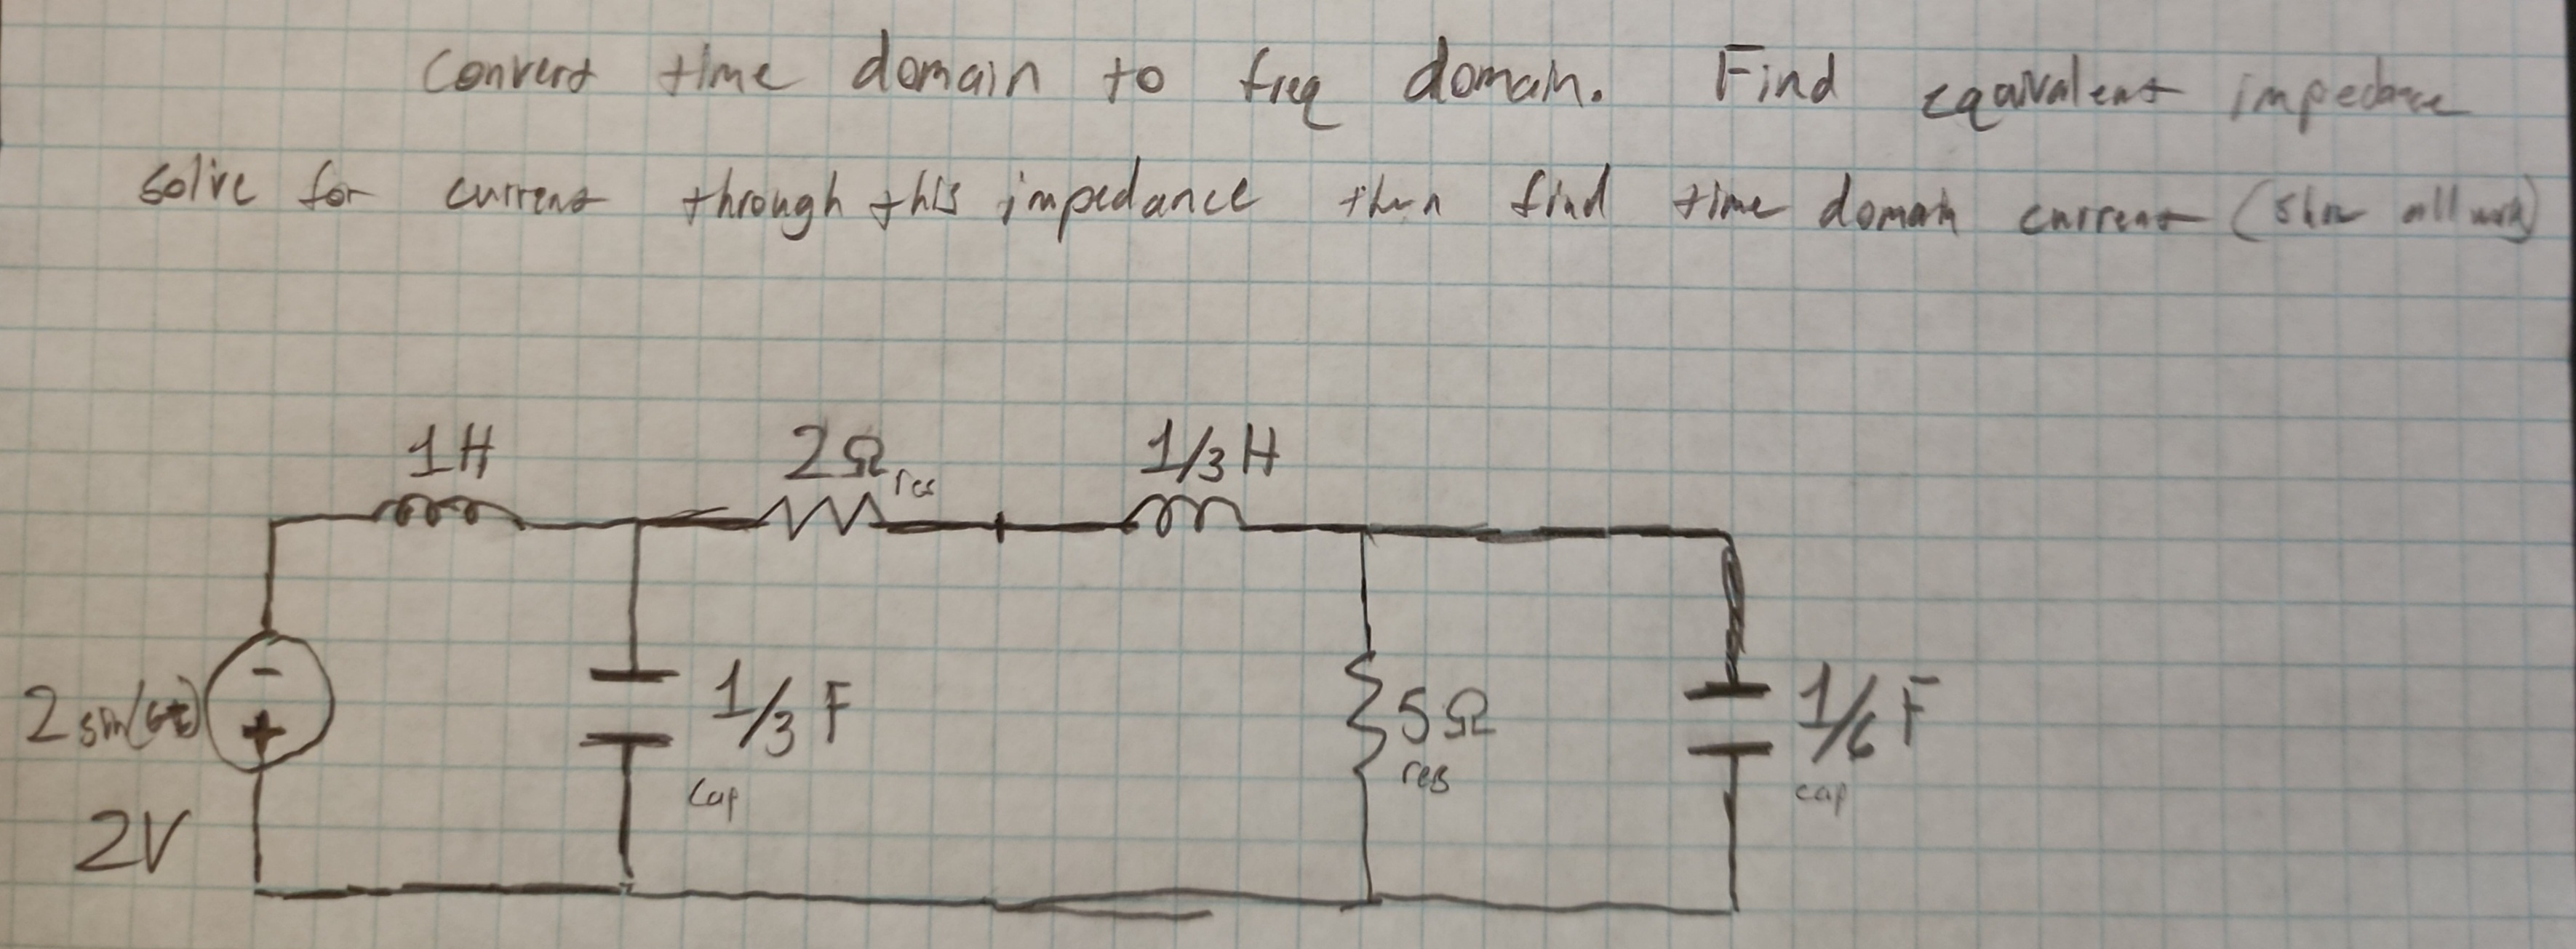 Convert time domain to freq domain. Find equivalent impedance
solve for current through this impedance then find time domain current (show all work)
1H
2Ω res
1/3 H
-
2 sin(6t)
+
2V
1/3 F
cap
5Ω
res
1/6 F
cap